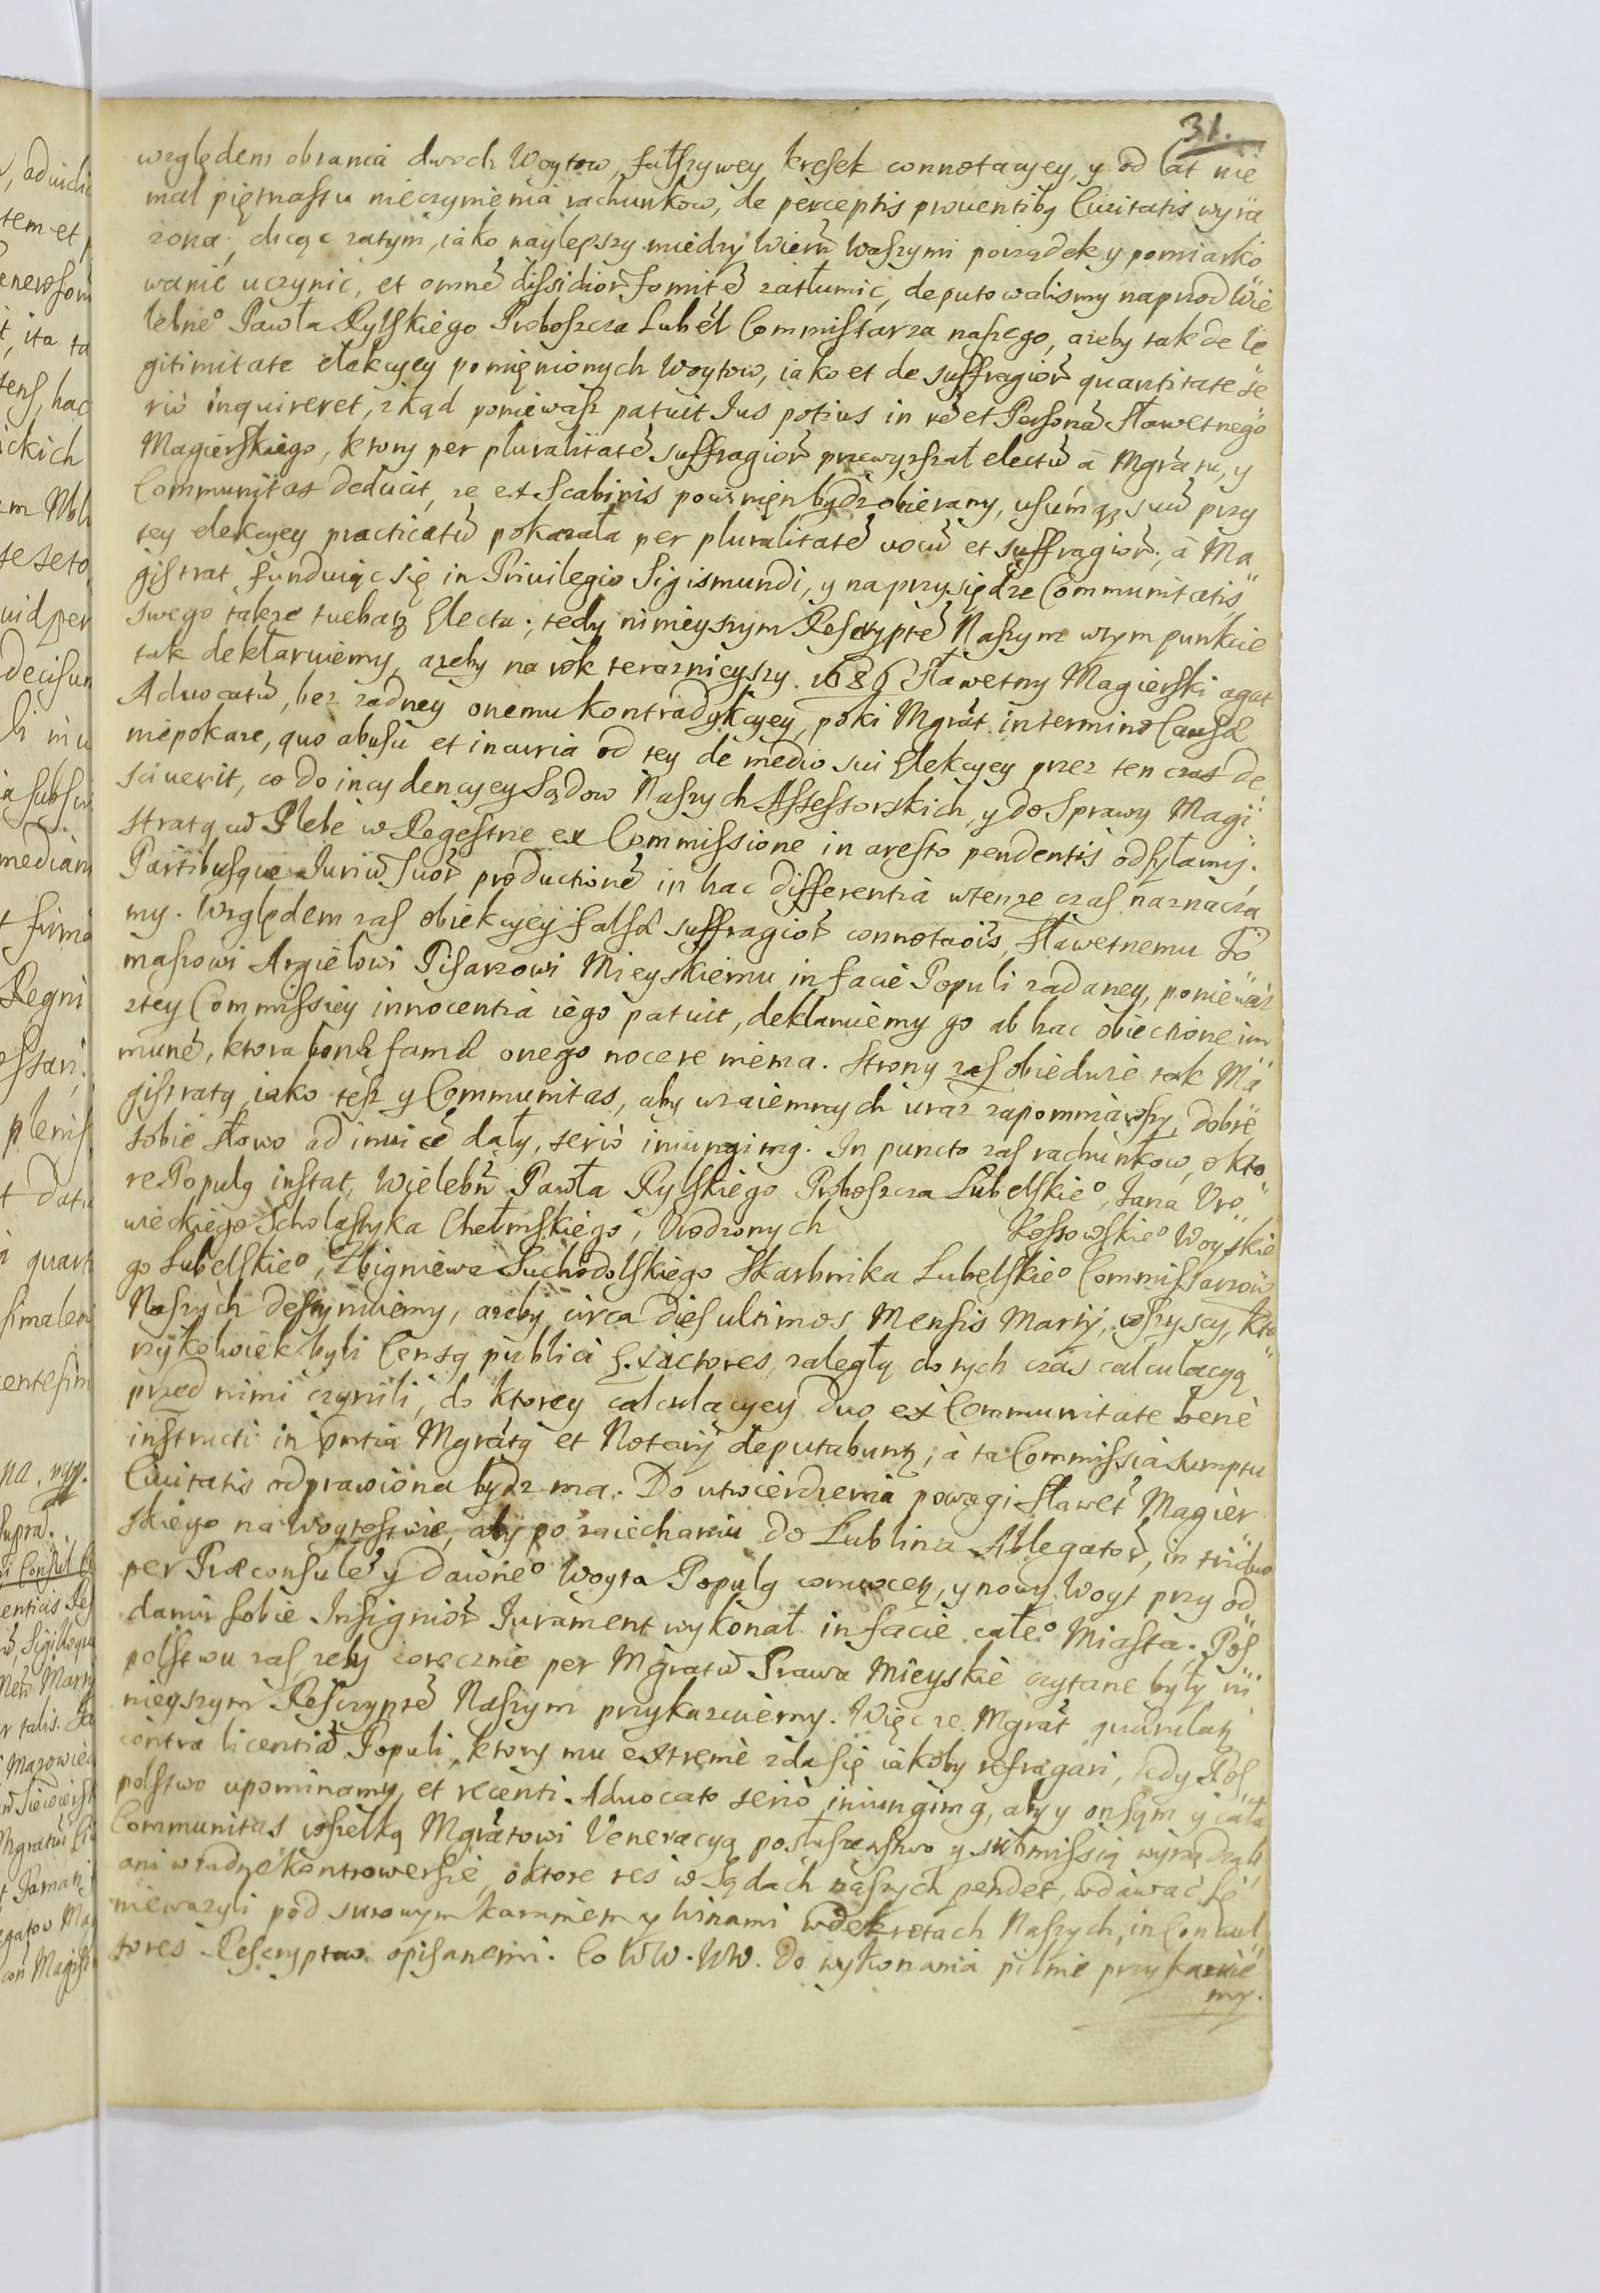 31.
względem obrania dwoch Woytow, fałszywey kresek connotacyey, y od lat nie
mal piętnastu nieczynienia rachunkow, de perceptis prouentibq Ciuitatis wyra
zona; chcąc zatym, iako naylepszy miedzy Wiern̄ Waszymi porządek y pomiarko
wanie uczynic, et omnē dissidiorꝝ fomitē zatłumic, deputowalismy naprzod Wie
lebneo Pawła Rylskiego Proboszcza Lubel Commissarza naszego, azeby tak de le
gitimitate elekcyey pomięnionych Woytow, iako et de suffragiorꝝ quantitate se
riò inquireret, zkąd poniewasz patuit Ius potius in rē et Personā Sławetnego
Magierskiego, ktory per pluralitatē suffragiorꝝ przewyzszał electū à Mgrā̄tu, y
Communitas deducit, ze ex Scabinis powinięn bydz obierany, usumqȝ suū przy
tey elekcyey practicatū pokazała per pluralitatē uocū et suffragiorꝝ; à Ma
gistrat funduiąc się in Priuilegio Sigismundi, y na przysiędze Communitatis
swego takze tuebatꝛ Electū; tedy ninieyszym Rescryptē Naszym wtym punkcie
tak deklaruiemy, azeby na rok teraznieyszy 1686 Sławetny Magierski agat
Aduocatū, bez zadney onemu kontradykcyey, poki Mgrāt. in termino Causæ
niepokaze, quo abusu et incuria od tey de medio sui Elekcyey przez ten czas de
sciuerit, co do incydencyey Sądow Naszych Assessorskich, y do Sprawy Magi
stratq cū Plebe w Regestrze ex Commissione in aresto pendentis odsyłamy.
Partibusque Iuriū suorꝝ productionē in hac differentiā wtenże czas naznacza
my. Względem zas obiekcyey falsæ suffragiorꝝ connotaōis, Sławetnemu To
maszowi Argielowi Pisarzowi Mieyskiemu in facie Populi zadaney, poniewasz
ztey Commissiey innocentia iego patuit, deklaruiemy go ab hac obiectione im
munē, ktora bonæ famæ onego nocere niema. Strony zas obiedwie tak Ma
gistratq iako tesz y Communitas, aby wzaiemnych uraz zapomniawszy, dobre
sobie słowo ad inuicē dały, seriò iniungimq. In puncto zas rachunkow, o kto
re Populq instat, Wielebn̄ Pawła Rylskiego Proboszcza Lubelskieo, Iana Vro
wieckiego Scholastyka Chełmskiego, Vrodzonych Kossowskieo Woyskie
go Lubelskieo, Zbigniewa Suchodolskiego Skarbnika Lubelskieo Commissarzow
Naszych destynuiemy, azeby circa dies ultimos Mensis Martij, wszyscy, kto
rzykolwiek byli Censq publici Exactores, zaległą do tych czas calculacyą
przed nimi czynili, do ktorey calculacyey duo ex Communitate bene
instructi in p̄ntiā Mgrātq et Notarij deputabuntꝛ; à ta Commissia sumptu
Ciuitatis odprawiona bydz ma. Do utwierdzenia powagi Sławet̄ Magier
skiego na Woytostwie, aby po ziechaniu do Lublina Ablegatorꝝ, in triduo
per Præconsulē y dawneo Woyta Populq conuocetꝛ, y nowy Woyt przy od
daniu sobie Insigniorꝝ Iurament wykonał in facie całeo Miasta. Pos
polstwu zas, zeby corocznie per Mgrātū Prawa Mieyskie czytane były ni
nieyszym Rescryptē Naszym przykazuiemy. Więc ze Mgrāt quærulatꝛ
contra licentiā Populi, ktory mu extremè zda się iakoby refragari, tedy Pos
polstwo upominamy, et recenti Aduocato seriò iniungimq, aby y on sąm y cała
Communitas wszelką Mgrātowi Veneracyą posłuszenstwo y submissią wyrządzali
ani w zadne kontrowersie, o ktore res w Sądach naszych pendet, wdawać się
niewazyli pod surowym karaniem y winami wdekretach Naszych, in Conuul
sores Rescryptow opisanemi. Co WW. WW. Do wykonania pilnie przykazuie
my.